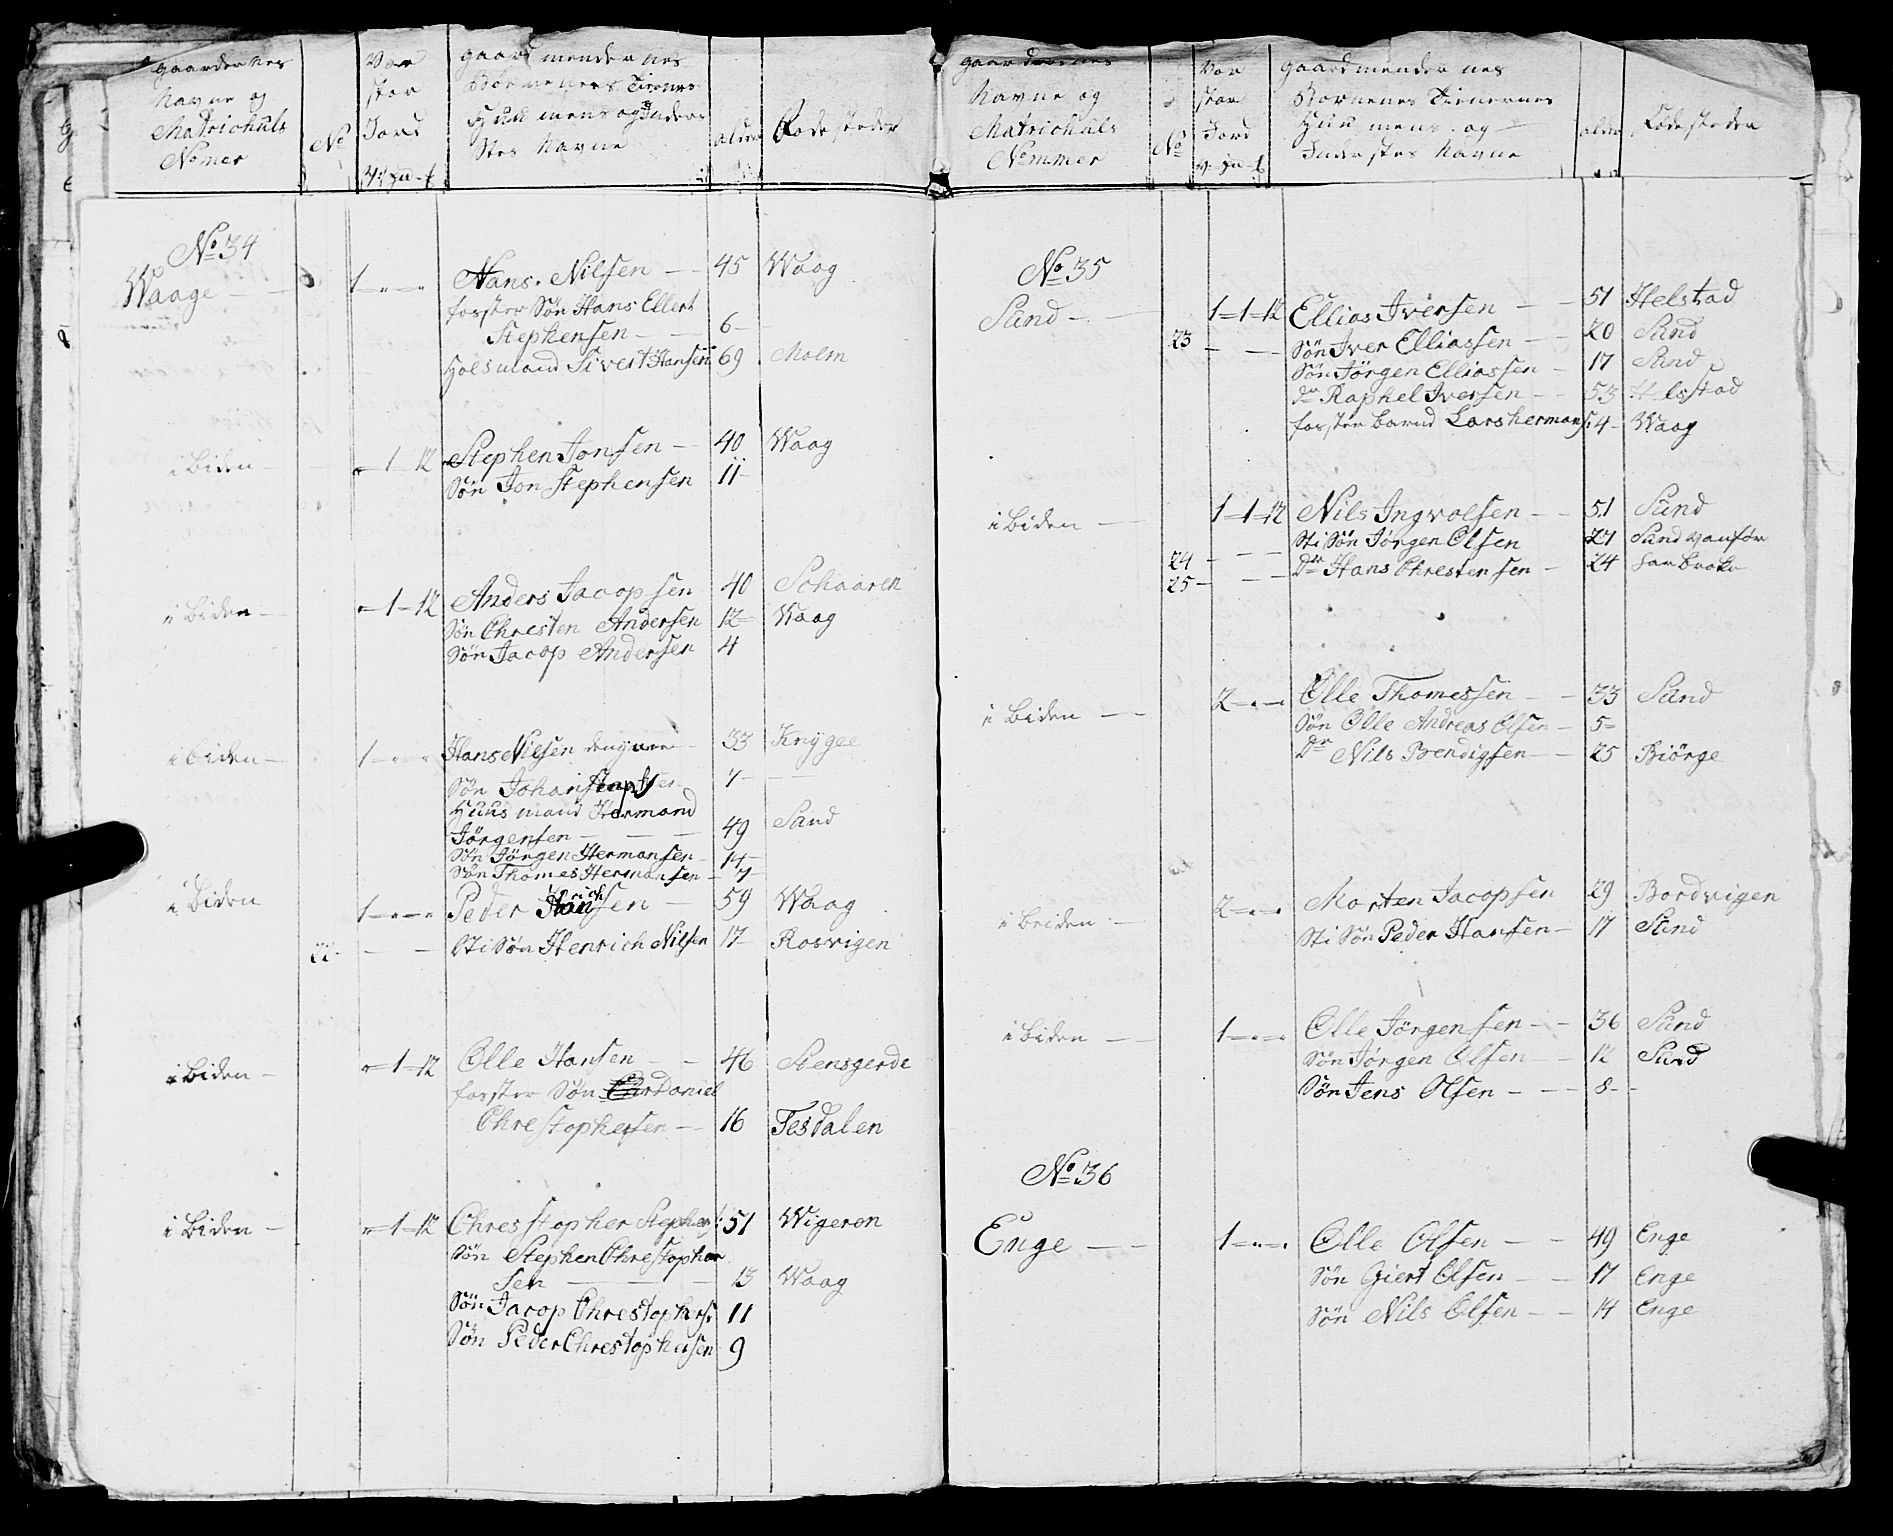 gaardernes
Navne og
Matrichuls
Nomer
No
Vor
stor
Jord
gaard mendernes
Navne
alder
Føde steder
No 34
Waage
1
Hans Nilsen 45 Waag
foster Søn Hans Ellert
Stephensen 6
Sivert Hansen 69 Molm
i biden
1 12 Stephen Jonsen 40 Waag
Søn Jon Stephensen 11
i biden
1 12 Anders Jacopsen 40 Schaaren
Søn Chresten Andersen 12 Waag
Søn Jacop Andersen 4
i biden
1 Hans Nilsen 33
Søn Johan
Huus mand Hermand
Jörgensen 49 Sand
Søn Jörgen Hermansen 14
Søn Thomes Hermansen 7
i biden
1 Peder 59 Waag
22 Sti Søn Henrich Nilsen 17 Rosvigen
i biden
1 12 Olle Hansen 46 Stensgerde
foster Søn Daniel
Chrestophersen 16 Tesdalen
i biden
1 12 Chresstopher 51 Wigeron
Søn Stephen Chrestopher
sen 13 Waag
Søn Jacop Chrestophers 11
Søn Peder Chrestophersen 9
gaardernes
Navne og
Matrichuls
Nommer
No
Vor
stor
Jord
gaardmendernes
Børnenes Tienernes
Huus mens og
Indersters Navne
alder
Føde steder
No 35
Sund
1 1 12 Ellias Iversen 51 Helstad
23 Søn Iver Elliassen 20 Sund
Søn Jörgen Elliassen 17 Sund
Raphel Iversen 53 Helstad
foster barnd Lars hermans: 4 Waag
i biden
1 1 12 Nils Ingvolsen 51 Sund
24 Sti Søn Jörgen Olsen 27 Sund vanför
25 Dr Hans Chrestensen 24
i biden
2 Olle Thomessen 33 Sund
Søn Olle Andreas Olsen 5
Dr Nils Bendigsen 25 Biörge
i beiden
2 Morten Jacopsen 29 Bordvigen
Sti Søn Peder Hansen 17 Sund
i biden
1 Olle Jörgensen 36 Sund
Søn Jörgen Olsen 12 Sund
Søn Jens Olsen 8
No 36
Enge
1 Olle Olsen 49 Enge
Søn Giert Olsen 17 Enge
Søn Nils Olsen 14 Enge